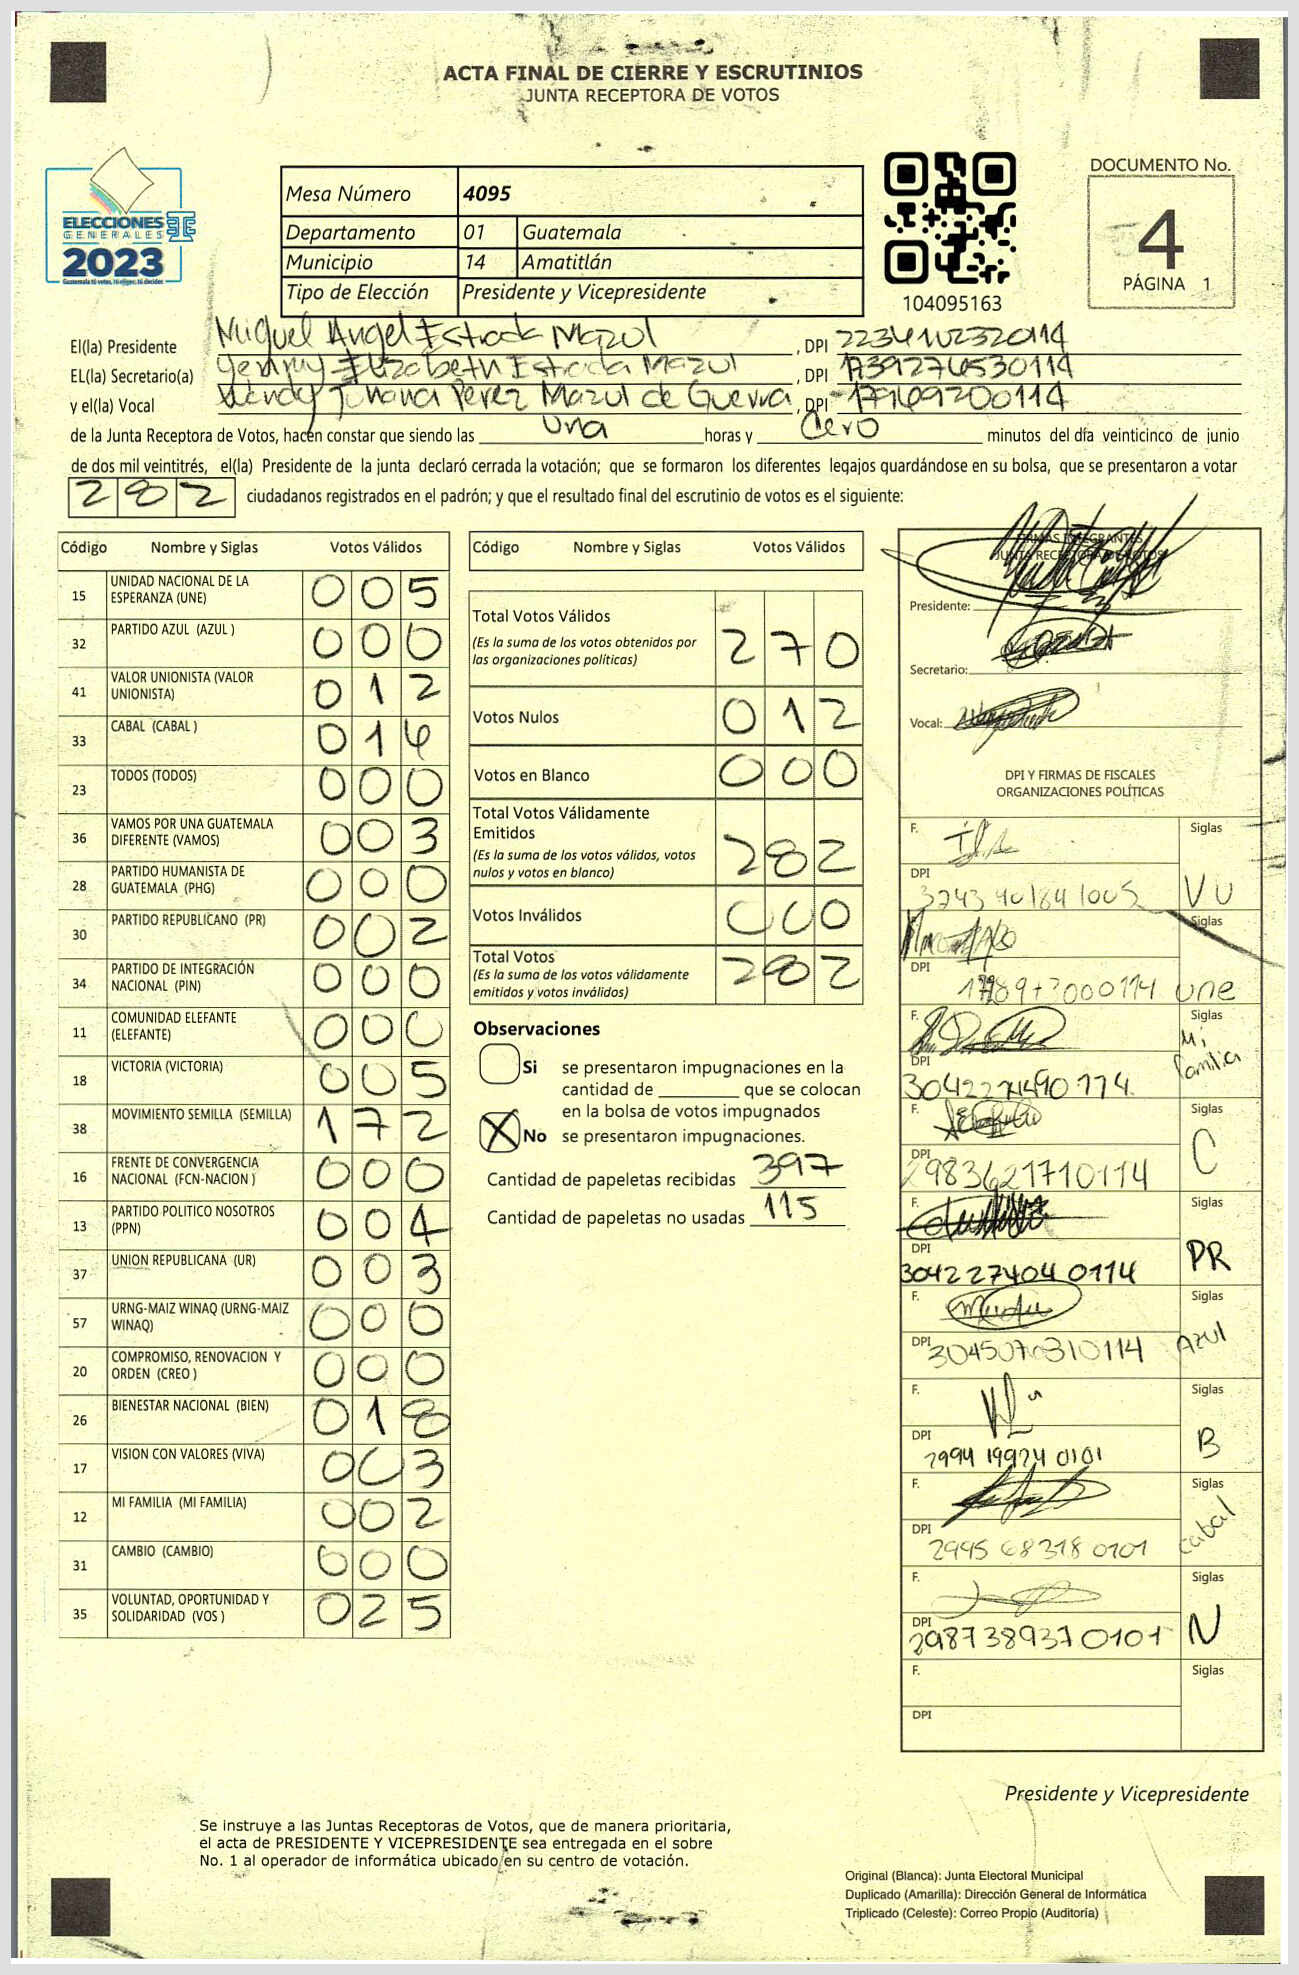 ACTA FINAL DE CIERRE Y ESCRUTINIOS
JUNTA RECEPTORA DE VOTOS
ELECCIONES
GENERALES
2023
Guatemala tú votas, tú eliges, tú decides
Mesa Número 4095
Departamento 01 Guatemala
Municipio 14 Amatitlán
Tipo de Elección Presidente y Vicepresidente
104095163
DOCUMENTO No.
4
PÁGINA 1
El(la) Presidente Miguel Angel Estrada Mazul, DPI 2234102320114
EL(la) Secretario(a) Elizabeth Estrada Mazul, DPI 1739276530114
y el(la) Vocal Johana Perez Mazul de Guerra, DPI
de la Junta Receptora de Votos, hacen constar que siendo las una horas y Cero minutos del día veinticinco de junio
de dos mil veintitrés, el(la) Presidente de la junta declaró cerrada la votación; que se formaron los diferentes legajos guardándose en su bolsa, que se presentaron a votar
282 ciudadanos registrados en el padrón; y que el resultado final del escrutinio de votos es el siguiente:
Código Nombre y Siglas Votos Válidos
15 UNIDAD NACIONAL DE LA ESPERANZA (UNE) 005
32 PARTIDO AZUL (AZUL ) 000
41 VALOR UNIONISTA (VALOR UNIONISTA) 012
33 CABAL (CABAL ) 016
23 TODOS (TODOS) 000
36 VAMOS POR UNA GUATEMALA DIFERENTE (VAMOS) 003
28 PARTIDO HUMANISTA DE GUATEMALA (PHG) 000
30 PARTIDO REPUBLICANO (PR) 002
34 PARTIDO DE INTEGRACIÓN NACIONAL (PIN) 000
11 COMUNIDAD ELEFANTE (ELEFANTE) 000
18 VICTORIA (VICTORIA) 005
38 MOVIMIENTO SEMILLA (SEMILLA) 172
16 FRENTE DE CONVERGENCIA NACIONAL (FCN-NACION ) 000
13 PARTIDO POLITICO NOSOTROS (PPN) 004
37 UNION REPUBLICANA (UR) 003
57 URNG-MAIZ WINAQ (URNG-MAIZ WINAQ) 000
20 COMPROMISO, RENOVACION Y ORDEN (CREO ) 000
26 BIENESTAR NACIONAL (BIEN) 018
17 VISION CON VALORES (VIVA) 003
12 MI FAMILIA (MI FAMILIA) 002
31 CAMBIO (CAMBIO) 000
35 VOLUNTAD, OPORTUNIDAD Y SOLIDARIDAD (VOS ) 025
Código Nombre y Siglas Votos Válidos
Total Votos Válidos 270
(Es la suma de los votos obtenidos por
las organizaciones políticas)
Votos Nulos 012
Votos en Blanco 000
Total Votos Válidamente
Emitidos 282
(Es la suma de los votos válidos, votos
nulos y votos en blanco)
Votos Inválidos 000
Total Votos 282
(Es la suma de los votos válidamente
emitidos y votos inválidos)
Observaciones
Si se presentaron impugnaciones en la
cantidad de ________ que se colocan
en la bolsa de votos impugnados
X No se presentaron impugnaciones.
Cantidad de papeletas recibidas 397
Cantidad de papeletas no usadas 115
FIRMAS INTEGRANTES
JUNTA RECEPTORA DE VOTOS
Presidente:
Secretario:
Vocal:
DPI Y FIRMAS DE FISCALES
ORGANIZACIONES POLÍTICAS
F. Siglas
DPI 3743 90184 1005 VU
Siglas
DPI une
F. Siglas
DPI 3042271490114 Mi familia
F. Siglas
DPI 2983621710114 C
F. Siglas
DPI 3042274040114 PR
F. Siglas
DPI 3045070310114 Azul
F. Siglas
DPI 2994 19974 0101 B
F. Siglas
DPI 2995 68318 0101 cabal
F. Siglas
DPI 2987389370101 N
F. Siglas
DPI
Presidente y Vicepresidente
Se instruye a las Juntas Receptoras de Votos, que de manera prioritaria,
el acta de PRESIDENTE Y VICEPRESIDENTE sea entregada en el sobre
No. 1 al operador de informática ubicado en su centro de votación.
Original (Blanca): Junta Electoral Municipal
Duplicado (Amarilla): Dirección General de Informática
Triplicado (Celeste): Correo Propio (Auditoría)